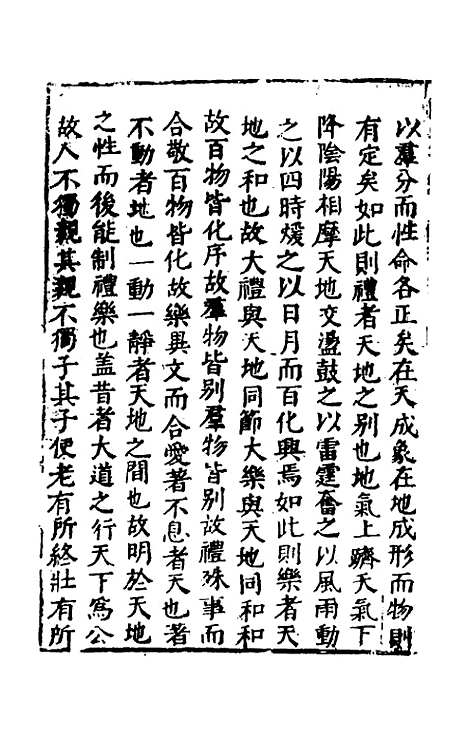 以羣分而性命各正矣在天成象在地成形而物則
有定矣如此則禮者天地之别也地氣上躋天氣下
降陰陽相摩天地交盪鼓之以雷霆奮之以風雨動
之以四時煖之以日月而百化興焉如此則樂者天
地之和也故大禮與天地同節大樂與天地同和和
故百物皆化序故羣物皆别羣物皆别故禮殊事而
合敬百物皆化故樂異文而合愛著不息者天也著
不動者地也一動一靜者天地之間也故明於天地
之性而後能制禮樂也盖昔者大道之行天下爲公
故人不獨親其親不獨子其子使老有所終壯有所